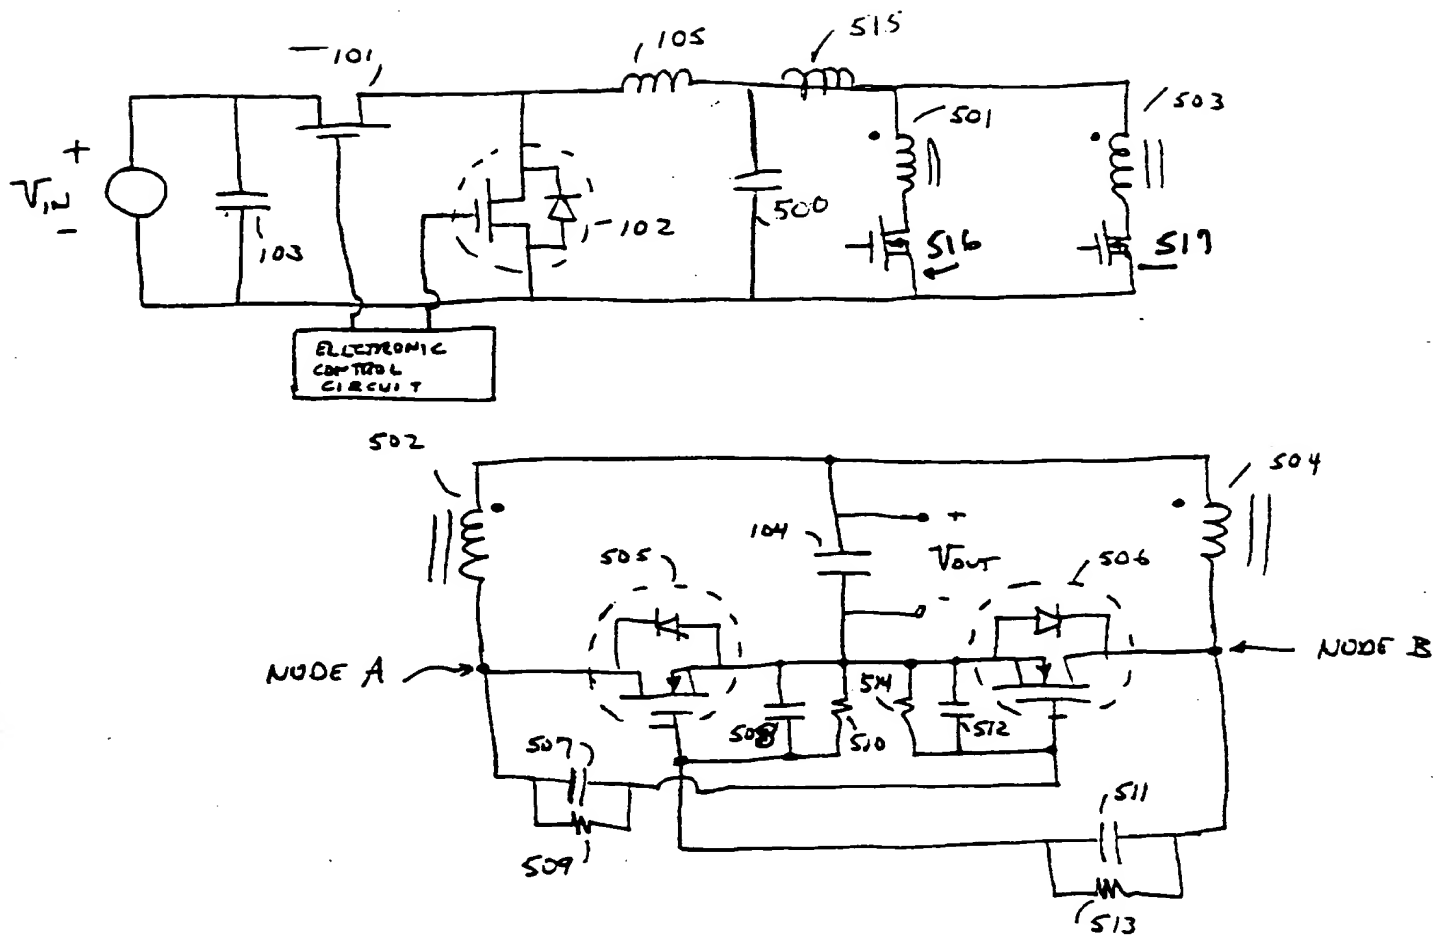 101
105
515
501
503
+
VIN
-
103
102
500
516
517
ELECTRONIC
CONTROL
CIRCUIT
502
504
+
104
VOUT
505
506
-
NODE A
NODE B
514
508
510
512
507
511
509
513